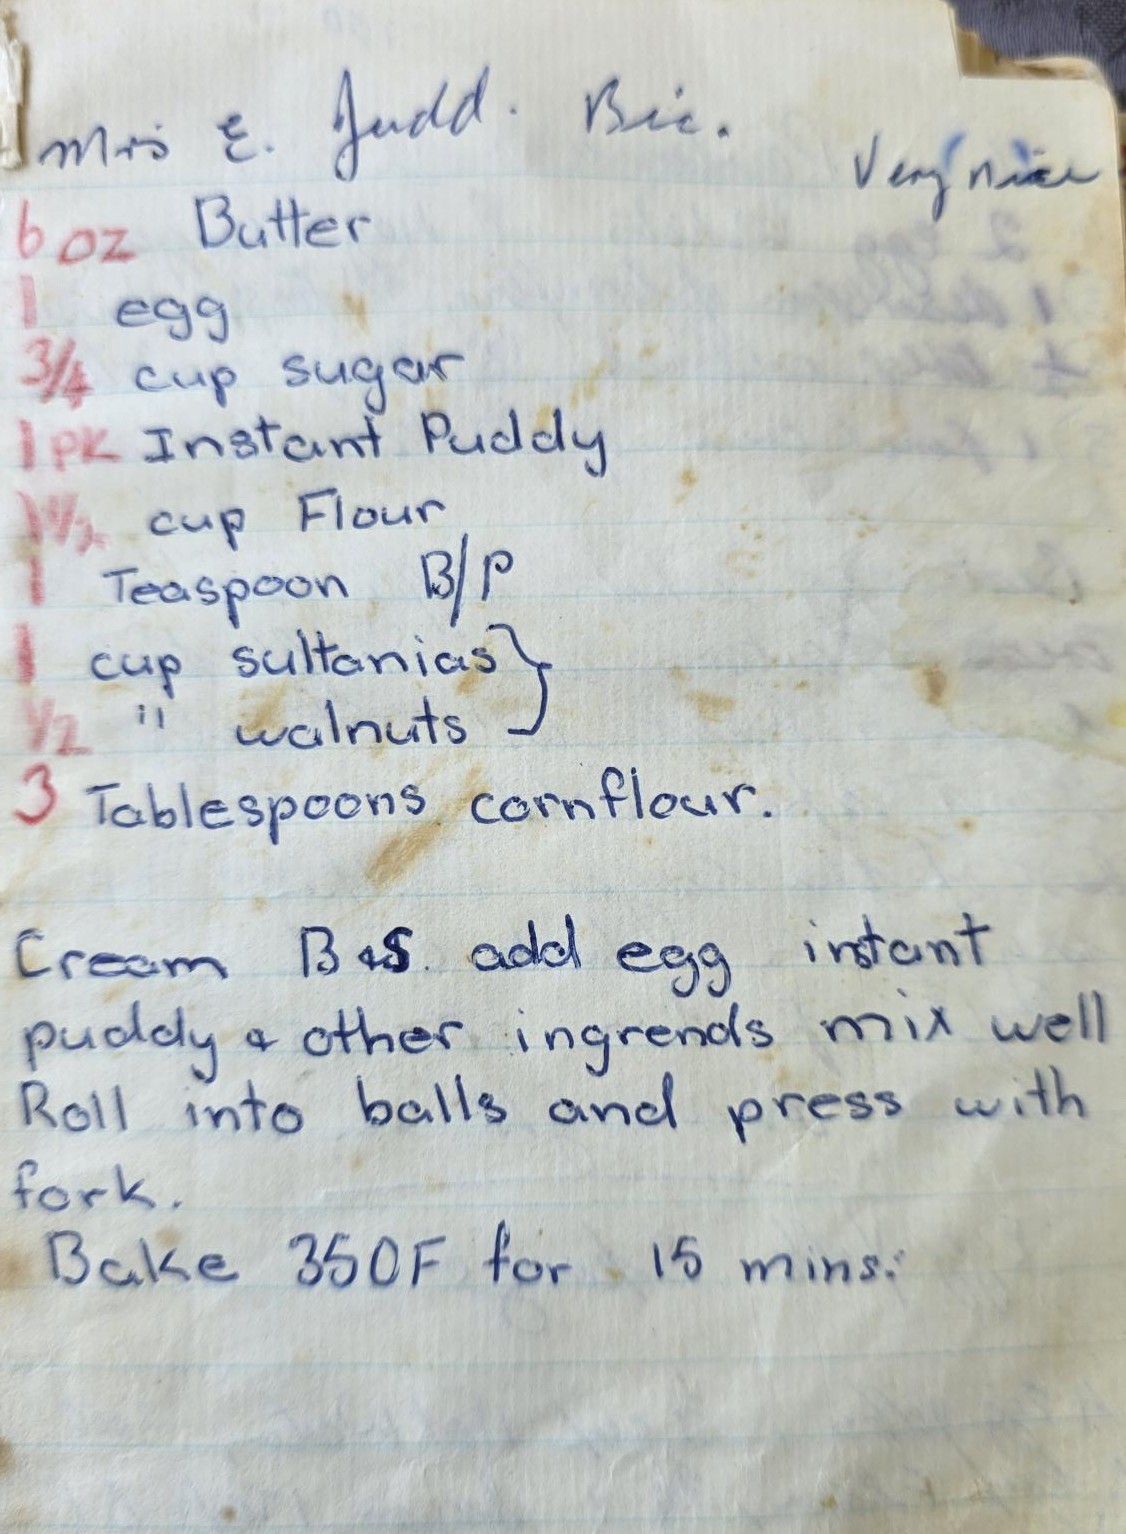 Mrs E. Judd. Bic.
Very nice
6 oz Butter
1 egg
3/4 cup sugar
1 PK Instant Puddy
1 1/2 cup Flour
1 Teaspoon B/P
1 cup sultanias }
1/2 " walnuts
3 Tablespoons cornflour.
Cream B &S. add egg instant
puddy & other ingrends mix well
Roll into balls and press with
fork.
Bake 350F for 15 mins.